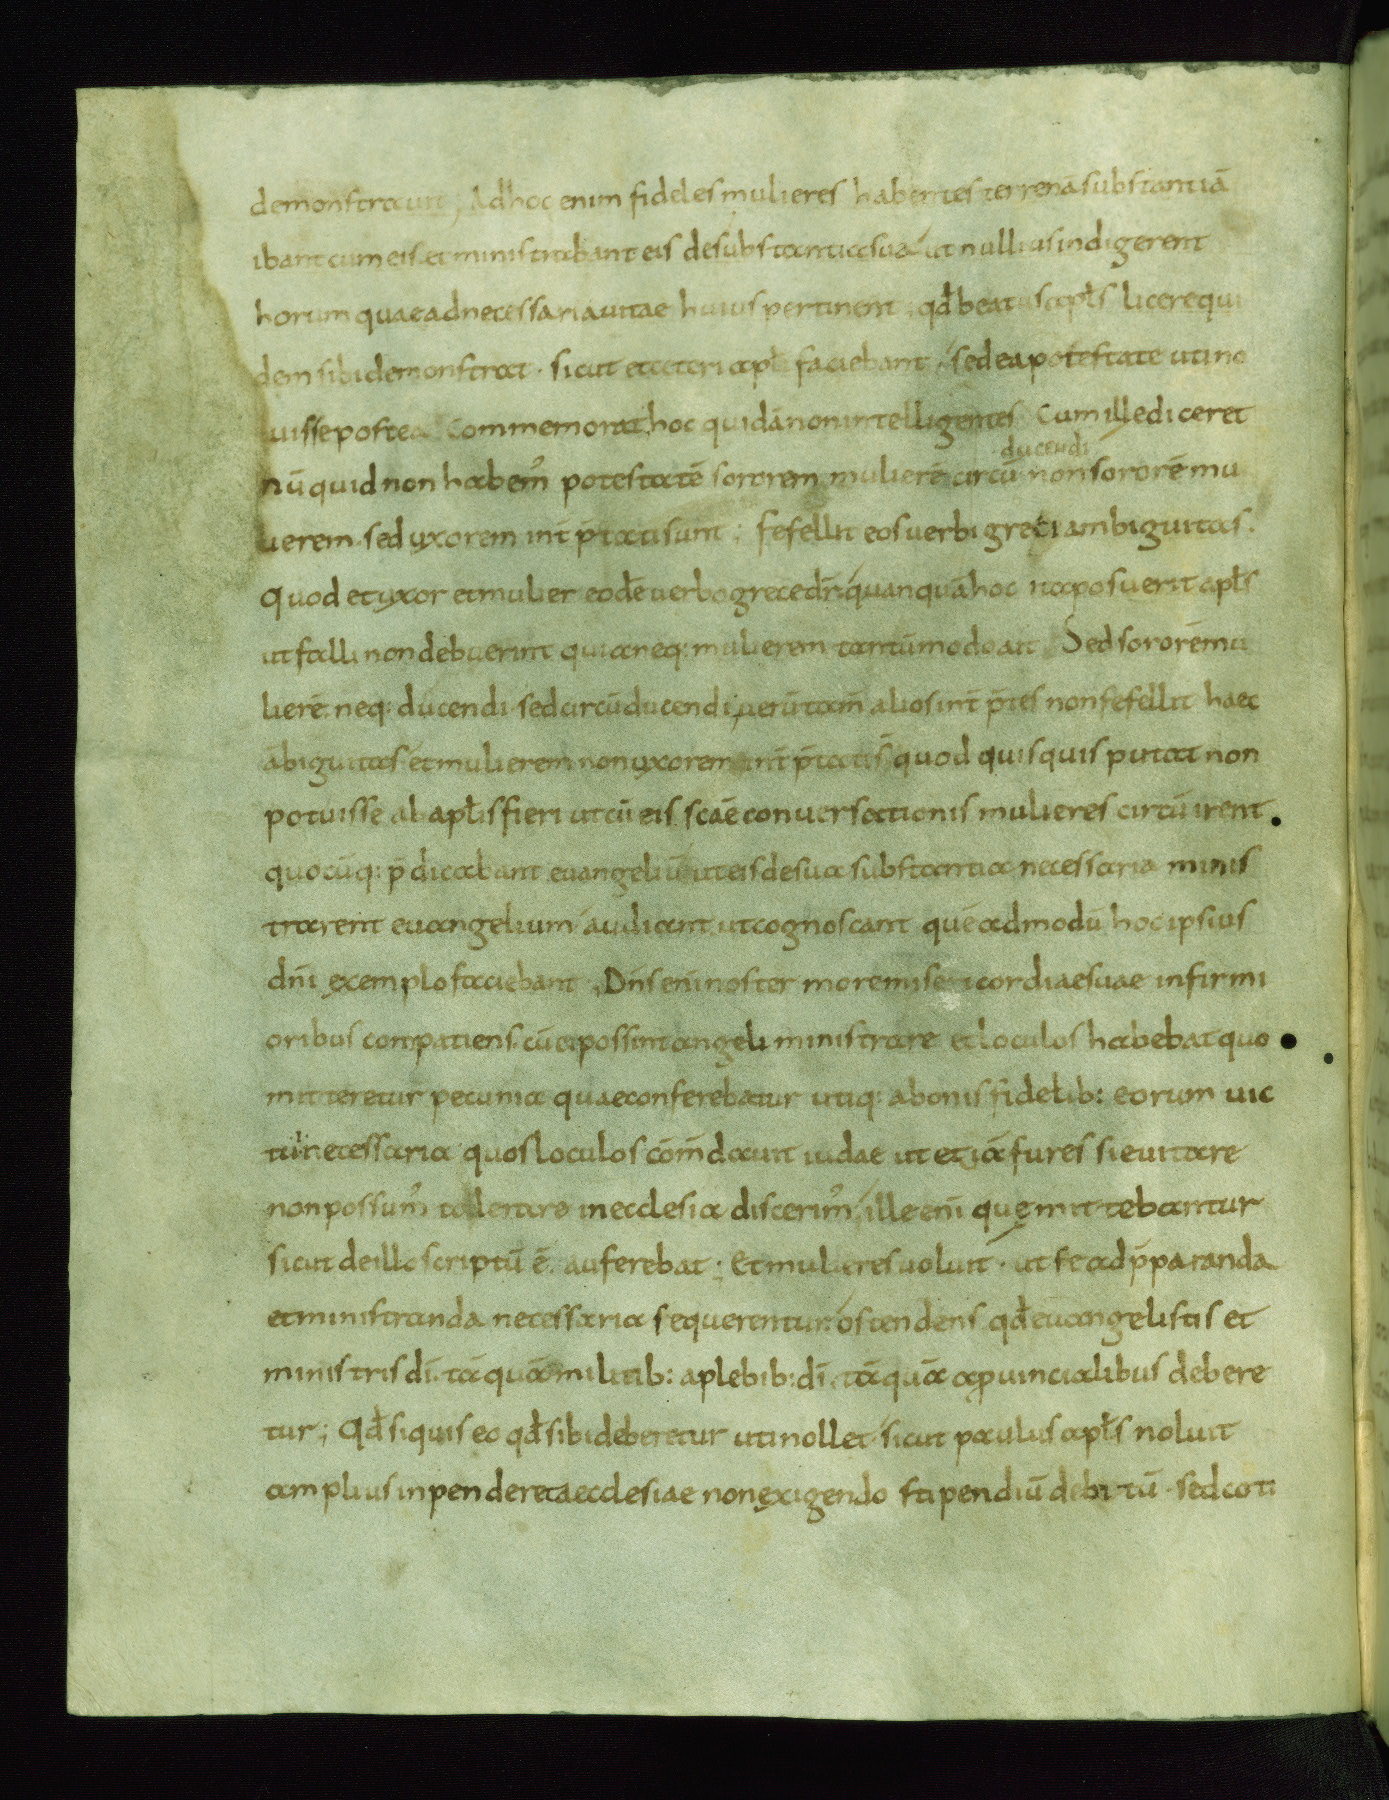 demonstrauit, Adhoc enim fideles mulieres habentes terrenā substantiā
ibant cum eis. et ministrabant eis de substantia sua ut nullius indigerent
horum quae ad necessaria uitae huius pertinent; qđ beatus apłs licere qui
dem sibi demonstrat · sicut et ceteri apłi faciebant, sed ea potestate uti no
luisse postea Commemorat. hoc quidā non intelligentes Cum ille diceret
ducendi
nū quid non habem᾽ potestatē sororem mulierē circū non sororē mu
lierem. sed uxorem int̄ p̄tati sunt; fefellit eos uerbi greci ambiguitas.
Quod et uxor et mulier eodē uerbo grece dr̄. quanquā hoc ita posuerit apłs
ut falli non debuerint quia neq: mulierem tantūmodo ait Sed sororē mu
lierē. neq: ducendi sed circūducendi, uerūtam̄ alios int̄ p̄tes non fefellit haec
ābiguitas et mulierem non uxorem int̄ p̄tati s̄ quod quisquis putat non
potuisse ab apłis fieri ut cū eis scāe conuersationis mulieres circū irent.
quocūq: p̄dicabant euangeliū ut eis de sua substantia necessaria minis
trarent euangelium audiant ut cognoscant quēadmodū hoc ipsius
dn̄i exemplo faciebant. Dn̄s enī noster more misericordiae suae infirmi
oribus compatiens. cū ei possint angeli ministrare et loculos habebat quo
mitteretur pecunia quae conferebatur utiq: a bonis fidelib: eorum uic
tui necessaria quos loculos com̄dauit iudae ut etiā fures si euitare
non possum᾽ tollerare in ecclesia discerim᾽, ille enī quę mittebantur
sicut de illo scriptū ē. auferebat; Et mulieres uoluit · ut se ad p̄paranda
et ministranda necessaria sequerentur. ostendens qđ euangelistis et
ministris dī. tā quā militib: a plebib: dī. tā quā a ꝓuincialibus debere
tur; Qđ si quis eo qđ sibi deberetur uti nollet sicut paulus apłs noluit
amplius inpenderet aecclesiae non exigendo stipendiū debitū · sed coti